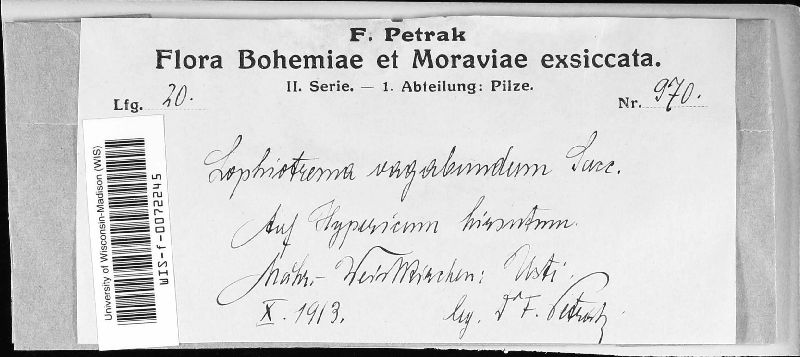 F. Petrak
Flora Bohemiae et Moraviae exsiccata.
II. Serie. — 1. Abteilung: Pilze.
Lfg. 20. Nr. 970.
Lophiotrema vagabundum Sacc.
Auf Hypericum hirsutum.
Mähr.-Weisskirchen: Usti.
X. 1913. leg. Dr F. Petrak
University of Wisconsin-Madison (WIS)
WIS-f-0072245